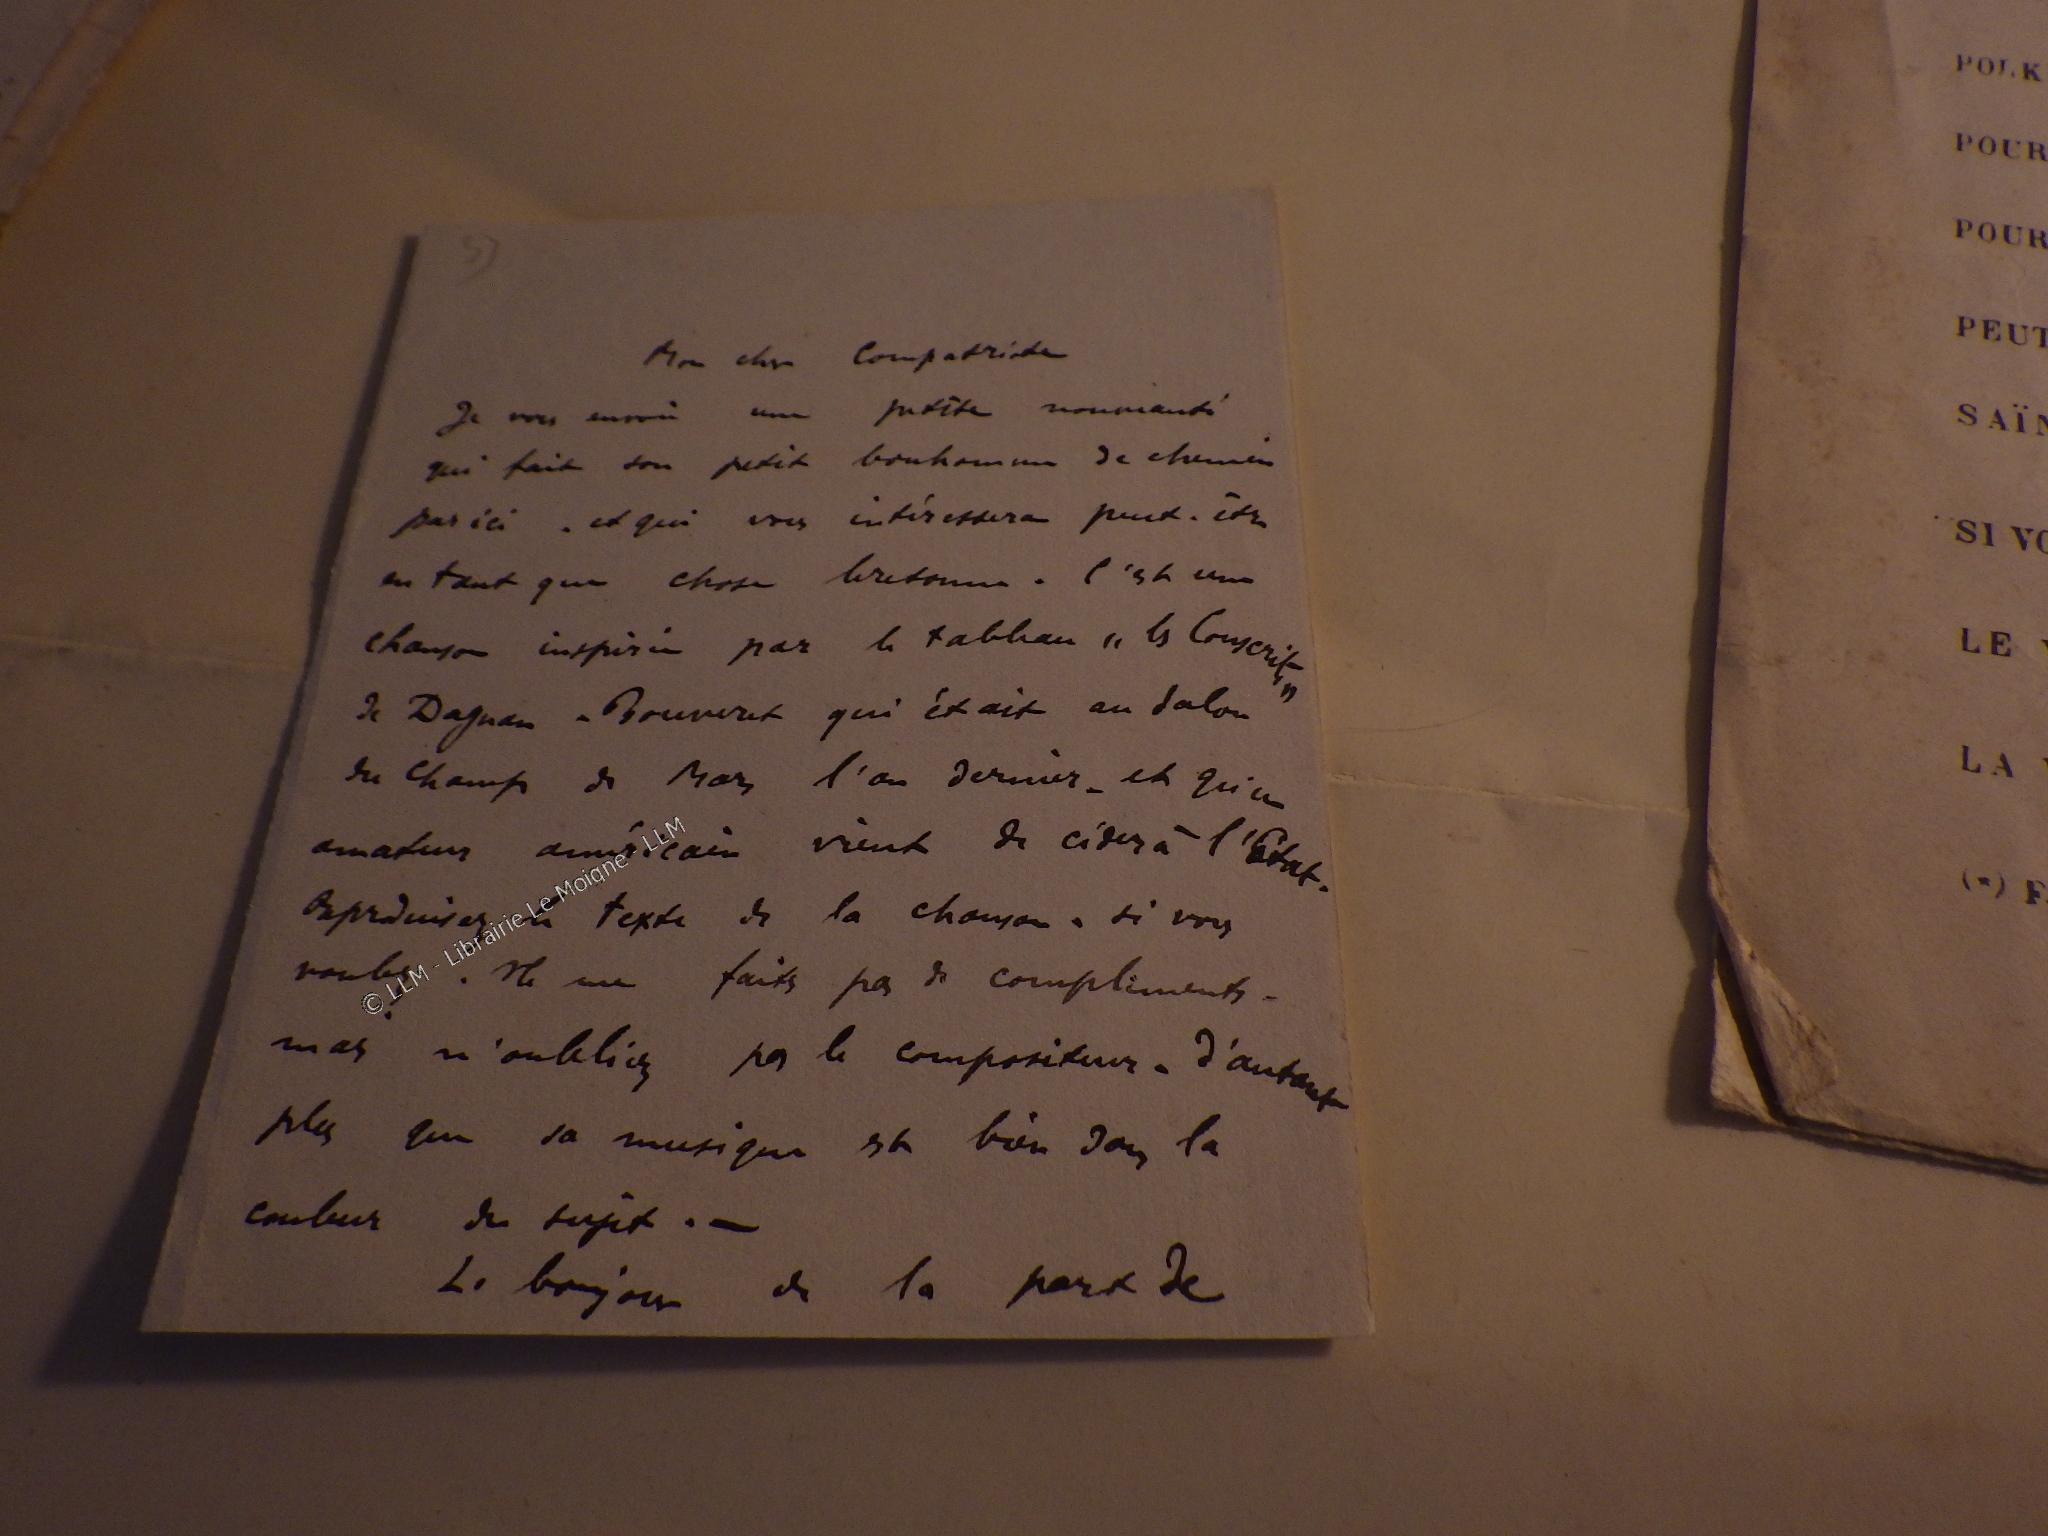 57
Mon cher Compatriote
Je vous envoie une petite nouveauté
qui fait son petit bonhomme de chemin
par ici - et qui vous intéressera peut-être
en tant que chose bretonne. C'est une
chanson inspirée par le tableau "les Conscrits"
de Dagnan-Bouveret qui était au Salon
du Champ de Mars l'an dernier - et qu'un
amateur américain vient de céder à l'État.
Reproduisez le texte de la chanson. si vous
voulez. Ne me faites pas de compliments -
mais n'oubliez pas le compositeur. d'autant
plus que sa musique est bien dans la
couleur du sujet. —
Le bonjour de la part de
© LLM - Librairie Le Moigne - LLM
POLK
POUR
POUR
PEUT
SAÏN
SI VO
LE V
LA V
(*) FA